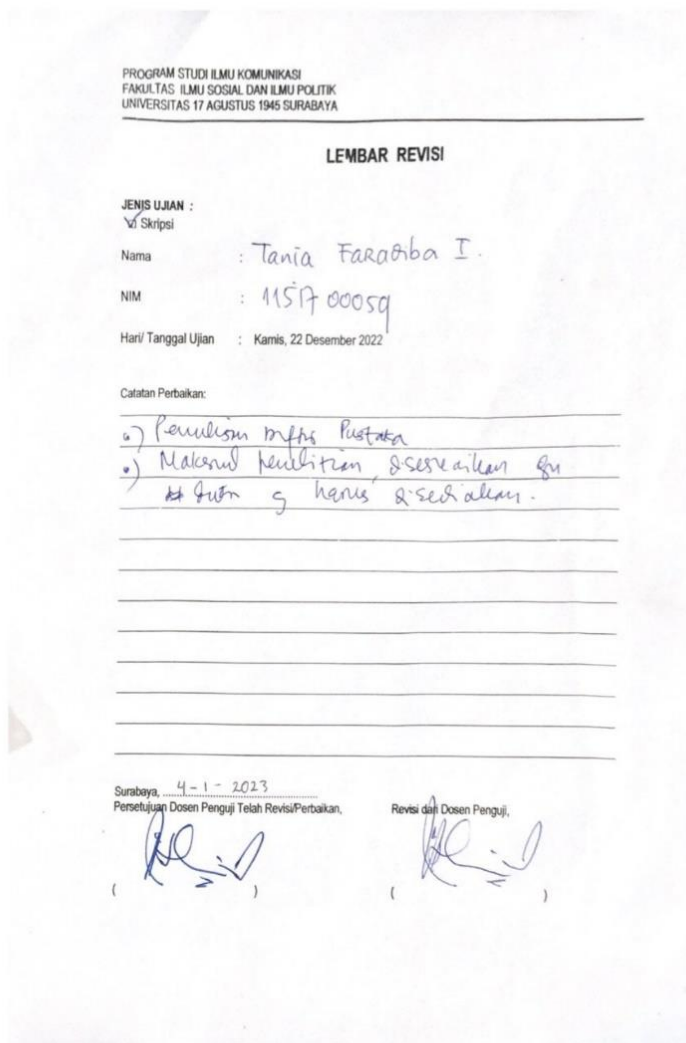 PROGRAM STUDI ILMU KOMUNIKASI
FAKULTAS ILMU SOSIAL DAN ILMU POLITIK
UNIVERSITAS 17 AGUSTUS 1945 SURABAYA
LEMBAR REVISI
JENIS UJIAN :
Skripsi
Nama : Tania Faradiba I.
NIM : 1151700059
Hari/ Tanggal Ujian : Kamis, 22 Desember 2022
Catatan Perbaikan:
Penulisan Pustaka
penelitian, disesuaikan
harus disediakan.
Surabaya, 4-1-2023
Persetujuan Dosen Penguji Telah Revisi/Perbaikan, Revisi dari Dosen Penguji,
( ) ( )